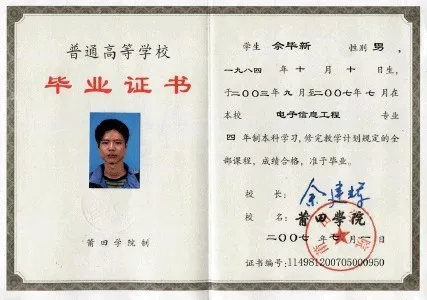 普通高等学校
毕业证书
莆田学院制
学生 余毕新 性别 男，
一九八四年十月十日生，
于二〇〇三年九月至二〇〇七年七月在
本校 电子信息工程 专业
四年制本科学习，修完教学计划规定的全
部课程，成绩合格，准予毕业。
校长：
校名：莆田学院
二〇〇七年七月一日
证书编号：114981200705000950